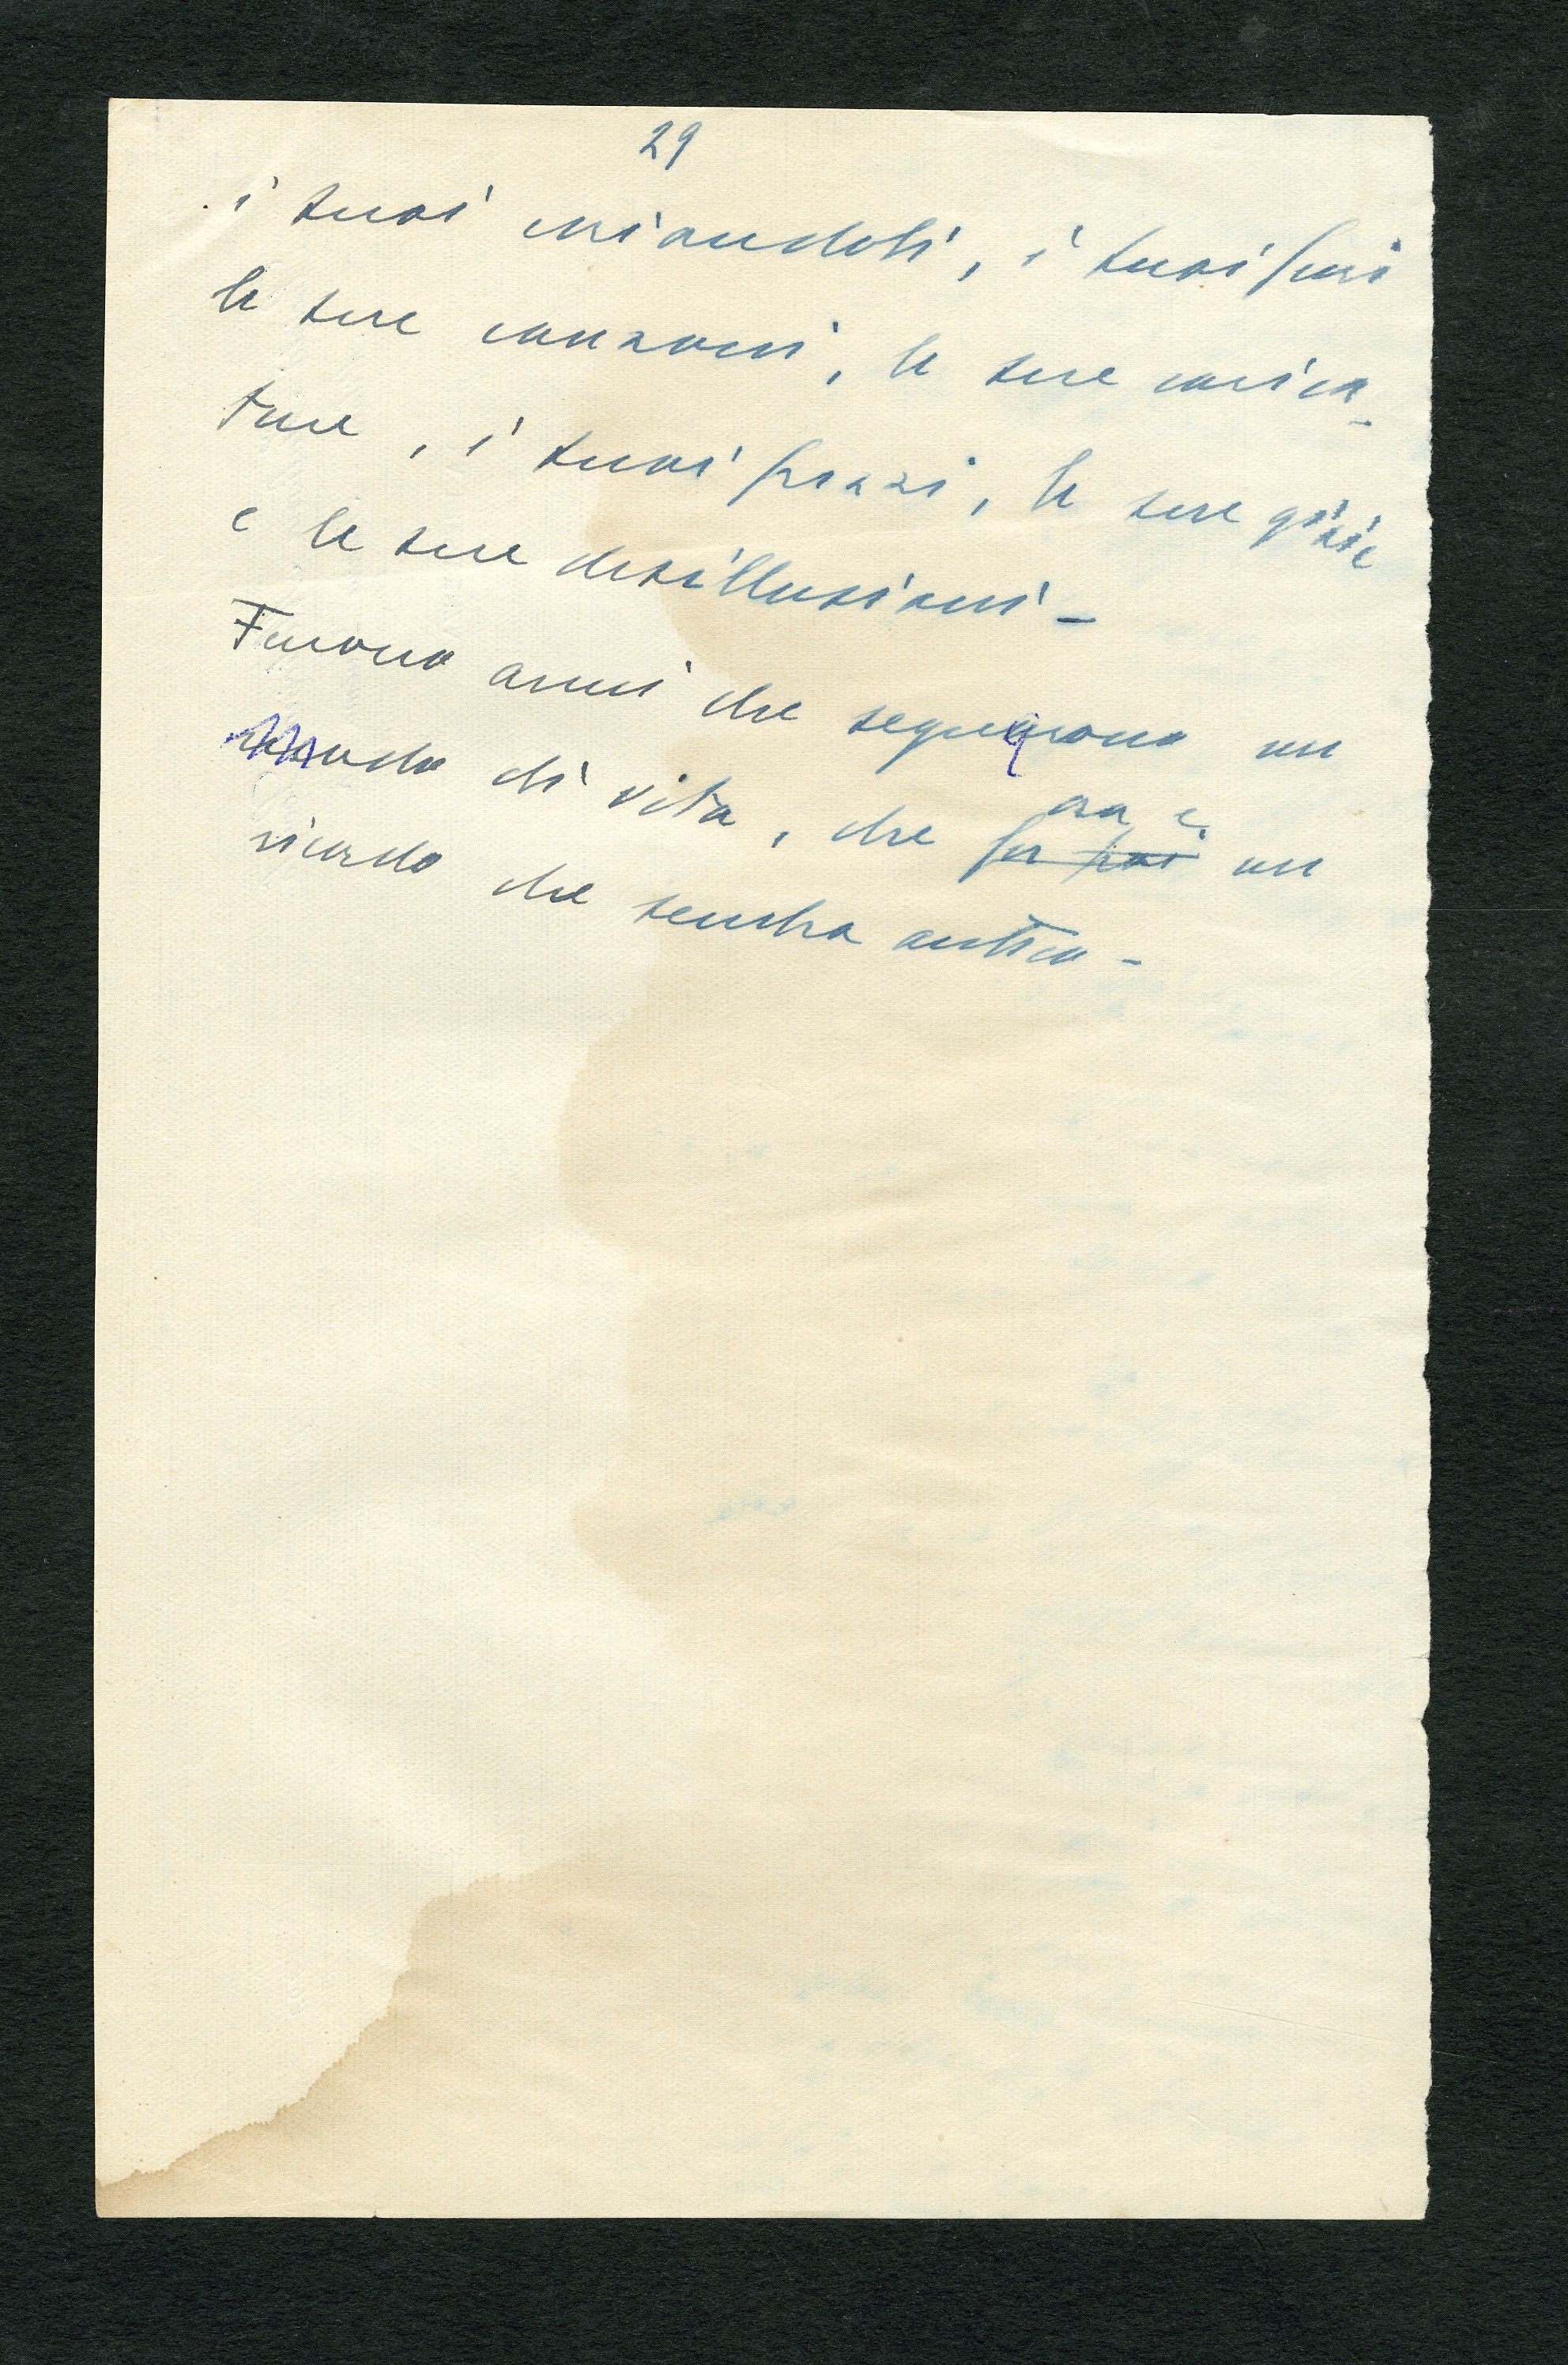 29
i suoi coriandoli, i suoi fiori
le sue canzoni, le sue carica-
ture, i suoi frizzi, le sue gioie
e le sue desillusioni -
Furono anni che segnarono un
modo di vita, che fu poi ora è un
ricordo che sembra antico -